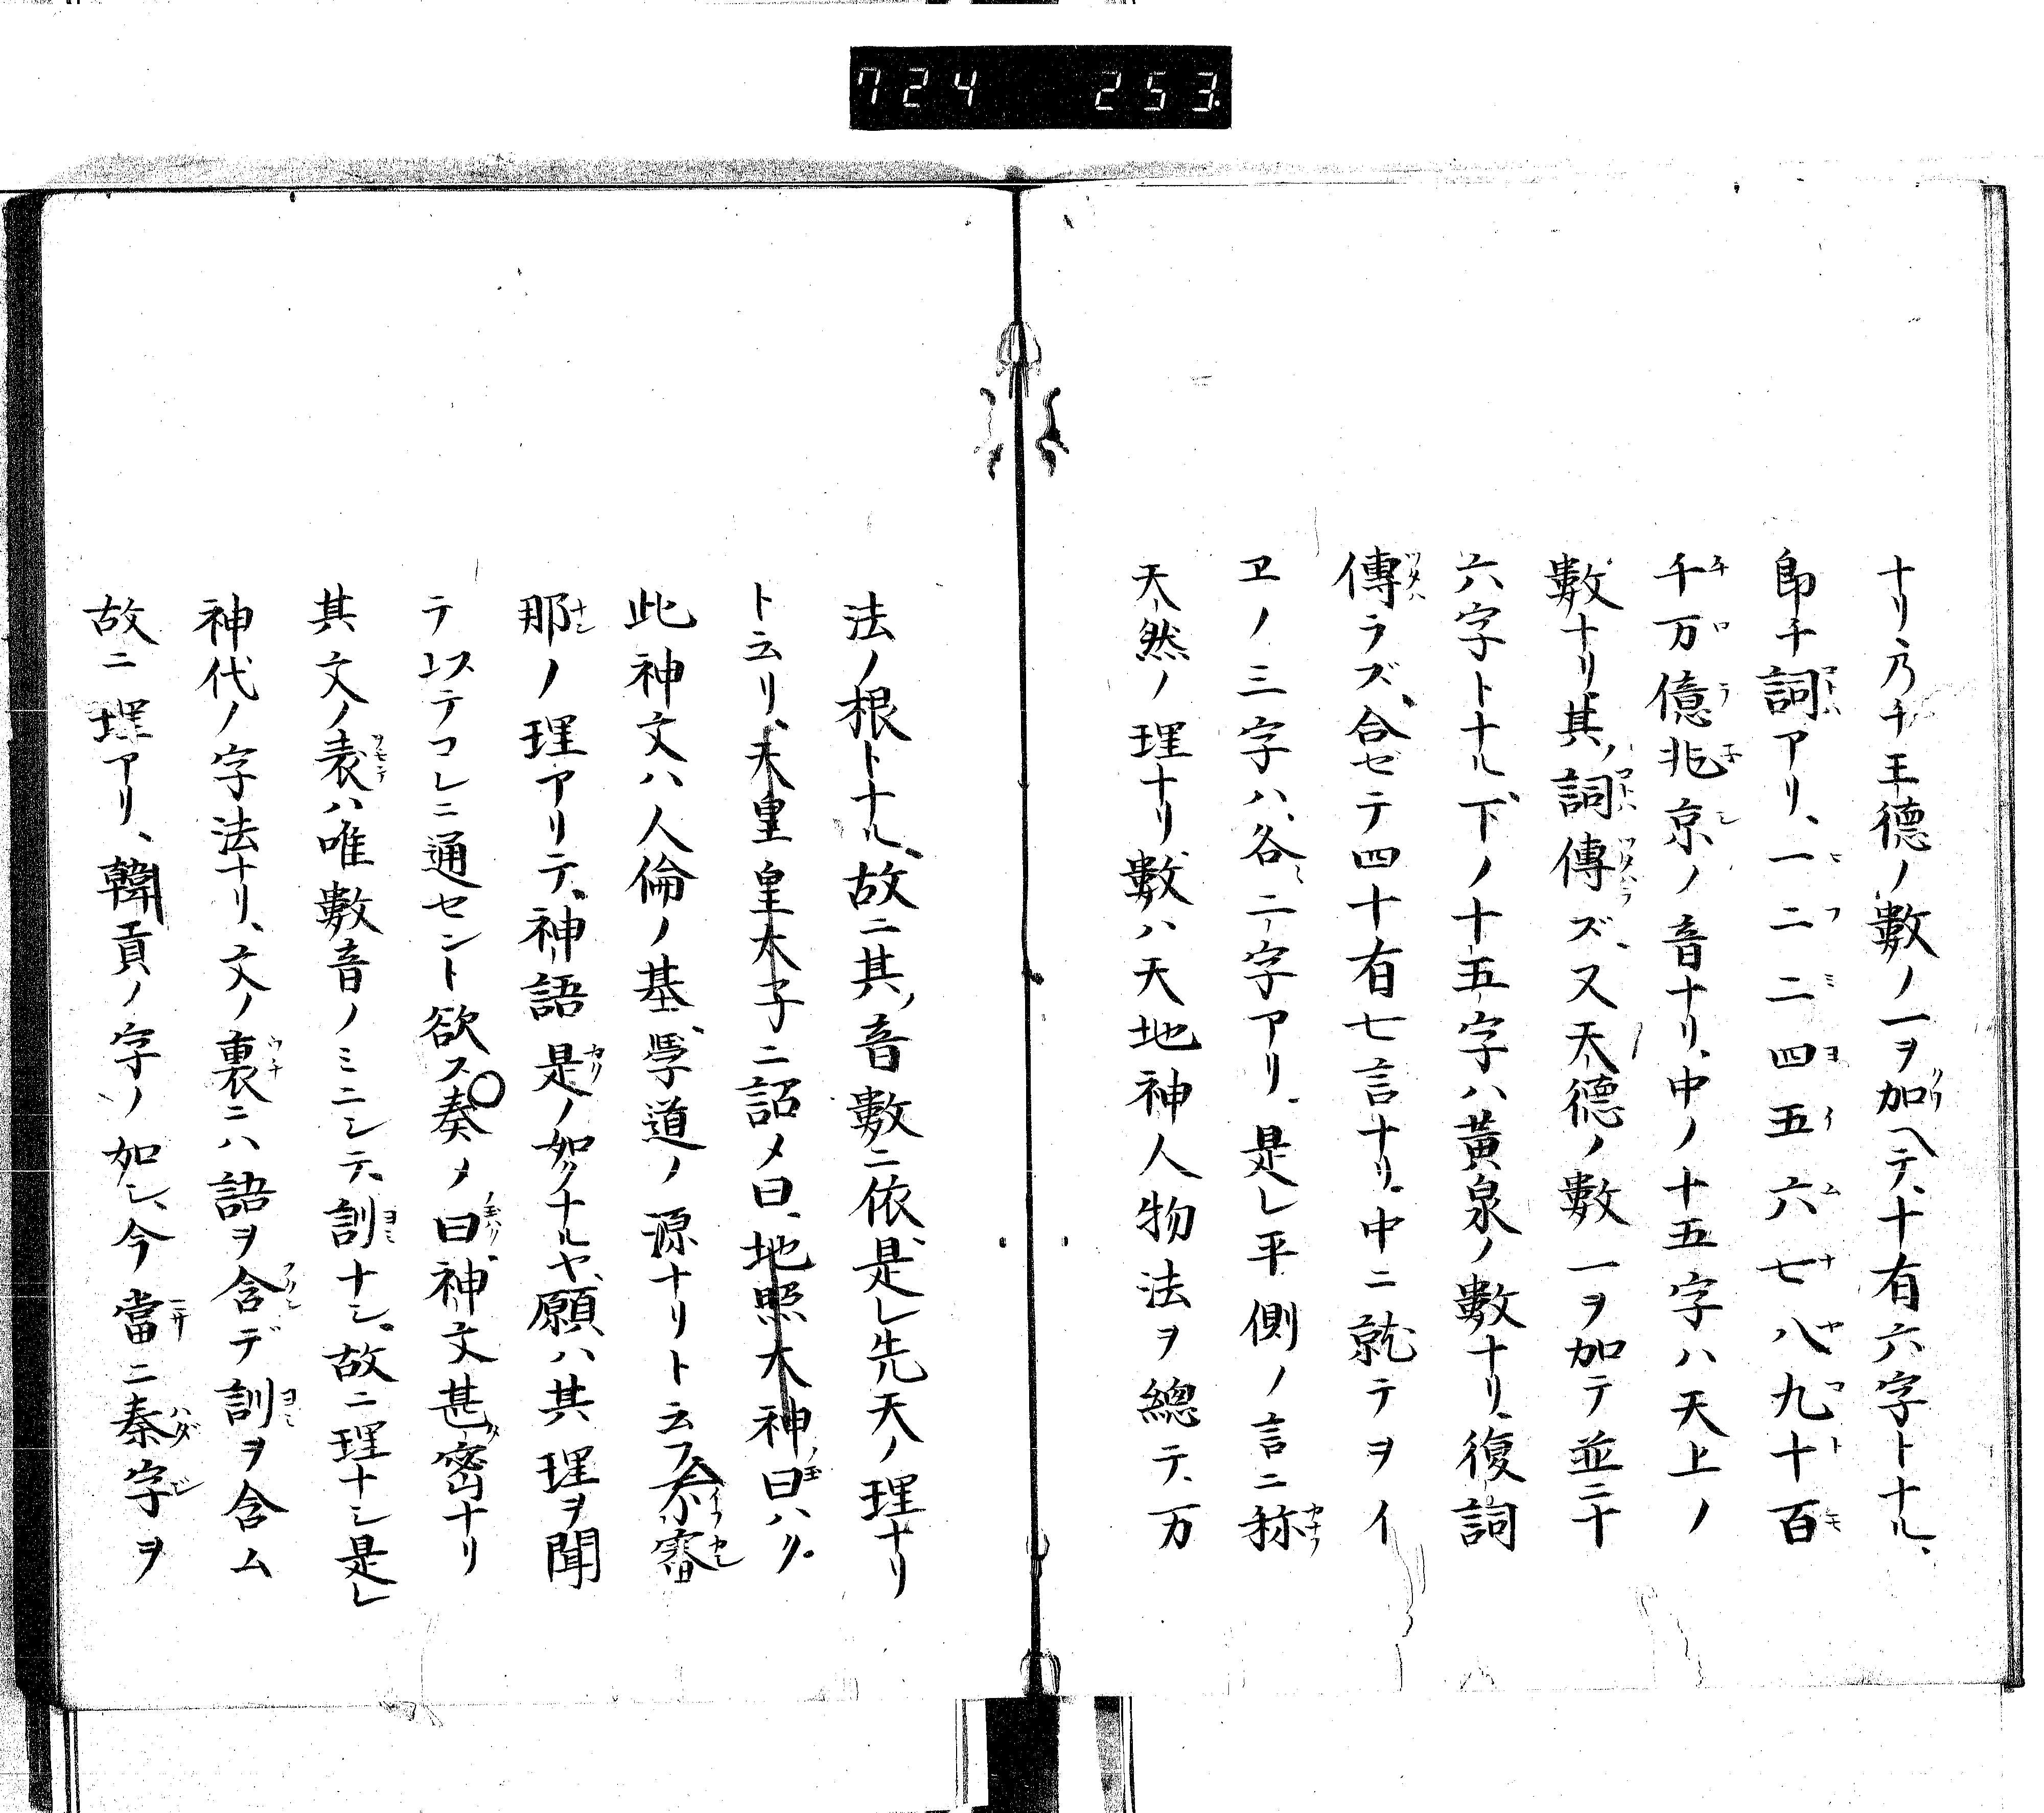 724 253.
ナリ乃チ王德ノ數ノ一ヲ加ヘテ、十有六字トナル、
即チ詞アリ、一二二四五六七八九十百
千万億兆京ノ音ナリ、中ノ十五字ハ天上ノ
數ナリ其ノ詞傳ズ、又天德ノ數一ヲ加テ並ニ十
六字トナル、下ノ十五字ハ黃泉ノ數ナリ、復詞
傳ラズ、合セテ四十有七言ナリ、中ニ就テヲイ
ヱノ三字ハ、各二字アリ、是レ平側ノ言ニ称
天然ノ理ナリ數ハ天地神人物法ヲ總テ、万
法ノ根トナル、故ニ其ノ音數ニ依、是レ先天ノ理ナリ
ト云リ、天皇皇太子ニ詔メ曰、地照大神ノ曰ハク。
此神文ハ人倫ノ基、學道ノ源ナリト云フ不審
那ノ理アリテ、神語是ノ如クナルヤ、願ハ其理ヲ聞
テステコレニ通セント欲ス奏メ曰神文甚密ナリ
其文ノ表ハ唯數音ノミニシテ、訓ナシ、故ニ理ナシ是レ
神代ノ字法ナリ、文ノ裏ニハ語ヲ含デ訓ヲ含ム
故ニ理アリ、韓貢ノ字ノ如シ、今當ニ秦字ヲ